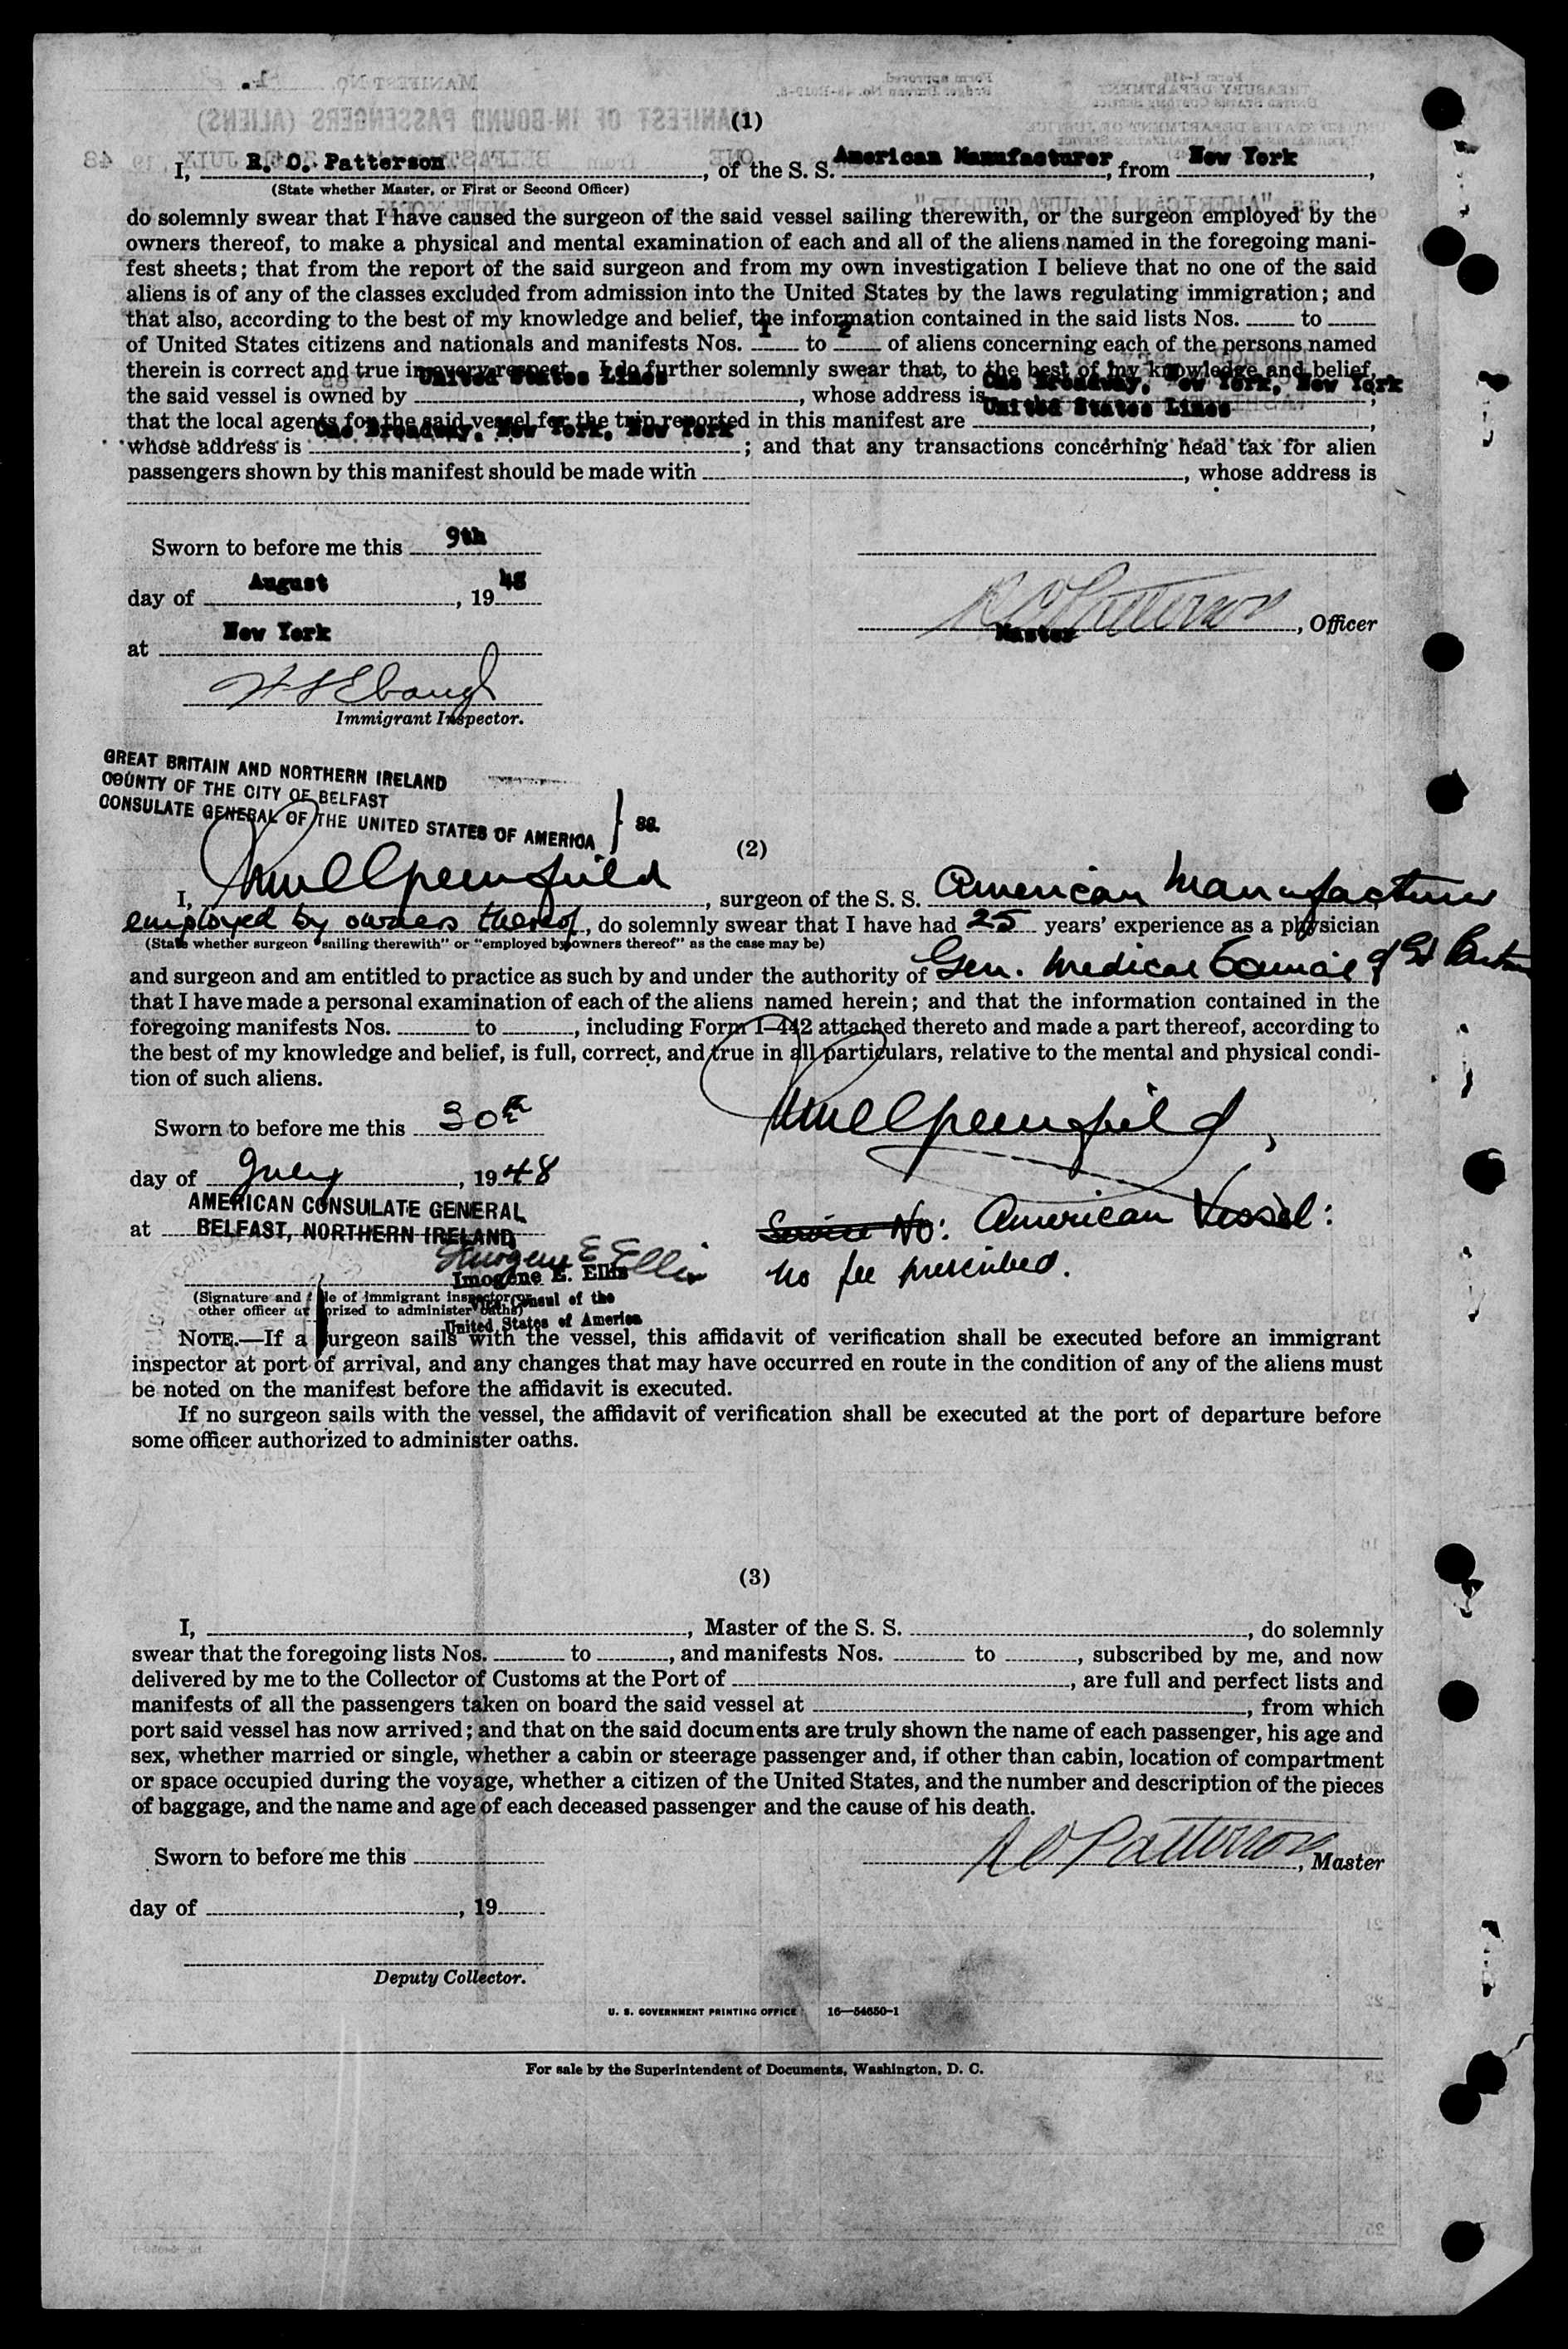 (1)
I, R. O. Patterson, of the S. S. American Manufacturer, from New York,
(State whether Master, or First or Second Officer)
do solemnly swear that I have caused the surgeon of the said vessel sailing therewith, or the surgeon employed by the
owners thereof, to make a physical and mental examination of each and all of the aliens named in the foregoing mani-
fest sheets; that from the report of the said surgeon and from my own investigation I believe that no one of the said
aliens is of any of the classes excluded from admission into the United States by the laws regulating immigration; and
that also, according to the best of my knowledge and belief, the information contained in the said lists Nos. ____ to ____
of United States citizens and nationals and manifests Nos. 1 to 2 of aliens concerning each of the persons named
therein is correct and true in every respect. I do further solemnly swear that, to the best of my knowledge and belief,
the said vessel is owned by United States Lines, whose address is One Broadway, New York, New York;
that the local agents for the said vessel for the trip reported in this manifest are United States Lines,
whose address is One Broadway, New York, New York; and that any transactions concerning head tax for alien
passengers shown by this manifest should be made with ____, whose address is
Sworn to before me this 9th
day of August, 1948
at New York
R O Patterson
Master, Officer
Immigrant Inspector.
GREAT BRITAIN AND NORTHERN IRELAND
COUNTY OF THE CITY OF BELFAST
CONSULATE GENERAL OF THE UNITED STATES OF AMERICA } ss.
(2)
I, ____, surgeon of the S. S. American Manufacturer
employed by owners thereof, do solemnly swear that I have had 25 years' experience as a physician
(State whether surgeon "sailing therewith" or "employed by owners thereof" as the case may be)
and surgeon and am entitled to practice as such by and under the authority of Gen. Medical Council of Gt Britain
that I have made a personal examination of each of the aliens named herein; and that the information contained in the
foregoing manifests Nos. ____ to ____, including Form I-442 attached thereto and made a part thereof, according to
the best of my knowledge and belief, is full, correct, and true in all particulars, relative to the mental and physical condi-
tion of such aliens.
Sworn to before me this 30th
day of July, 1948
at AMERICAN CONSULATE GENERAL
BELFAST, NORTHERN IRELAND
Service No: American Vessel:
No fee prescribed.
Imogene E Ellis
Imogene E. Ellis
Vice Consul of the
United States of America
(Signature and title of immigrant inspector or
other officer authorized to administer oaths)
NOTE.—If a surgeon sails with the vessel, this affidavit of verification shall be executed before an immigrant
inspector at port of arrival, and any changes that may have occurred en route in the condition of any of the aliens must
be noted on the manifest before the affidavit is executed.
If no surgeon sails with the vessel, the affidavit of verification shall be executed at the port of departure before
some officer authorized to administer oaths.
(3)
I, ____, Master of the S. S. ____, do solemnly
swear that the foregoing lists Nos. ____ to ____, and manifests Nos. ____ to ____, subscribed by me, and now
delivered by me to the Collector of Customs at the Port of ____, are full and perfect lists and
manifests of all the passengers taken on board the said vessel at ____, from which
port said vessel has now arrived; and that on the said documents are truly shown the name of each passenger, his age and
sex, whether married or single, whether a cabin or steerage passenger and, if other than cabin, location of compartment
or space occupied during the voyage, whether a citizen of the United States, and the number and description of the pieces
of baggage, and the name and age of each deceased passenger and the cause of his death.
Sworn to before me this ____
R O Patterson, Master
day of ____, 19____
Deputy Collector.
U. S. GOVERNMENT PRINTING OFFICE 16—54650-1
For sale by the Superintendent of Documents, Washington, D. C.